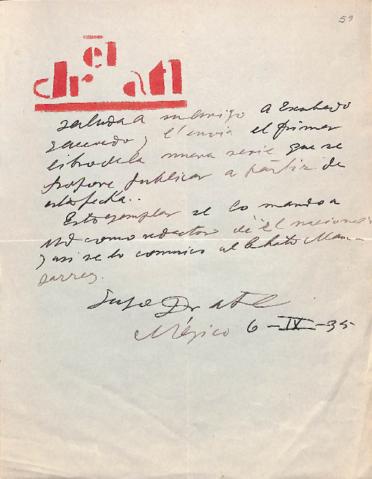 59
él
dr atl
saluda a su amigo a Escobedo
y l'envia el primer
libro de la nueva serie que se
propone publicar a partir de
esta fecha..
Este ejemplar se lo mando a
Ud como redactor de El nacional
y asi se lo comunico al Chato Man-
Dr atl
México 6-IV-35